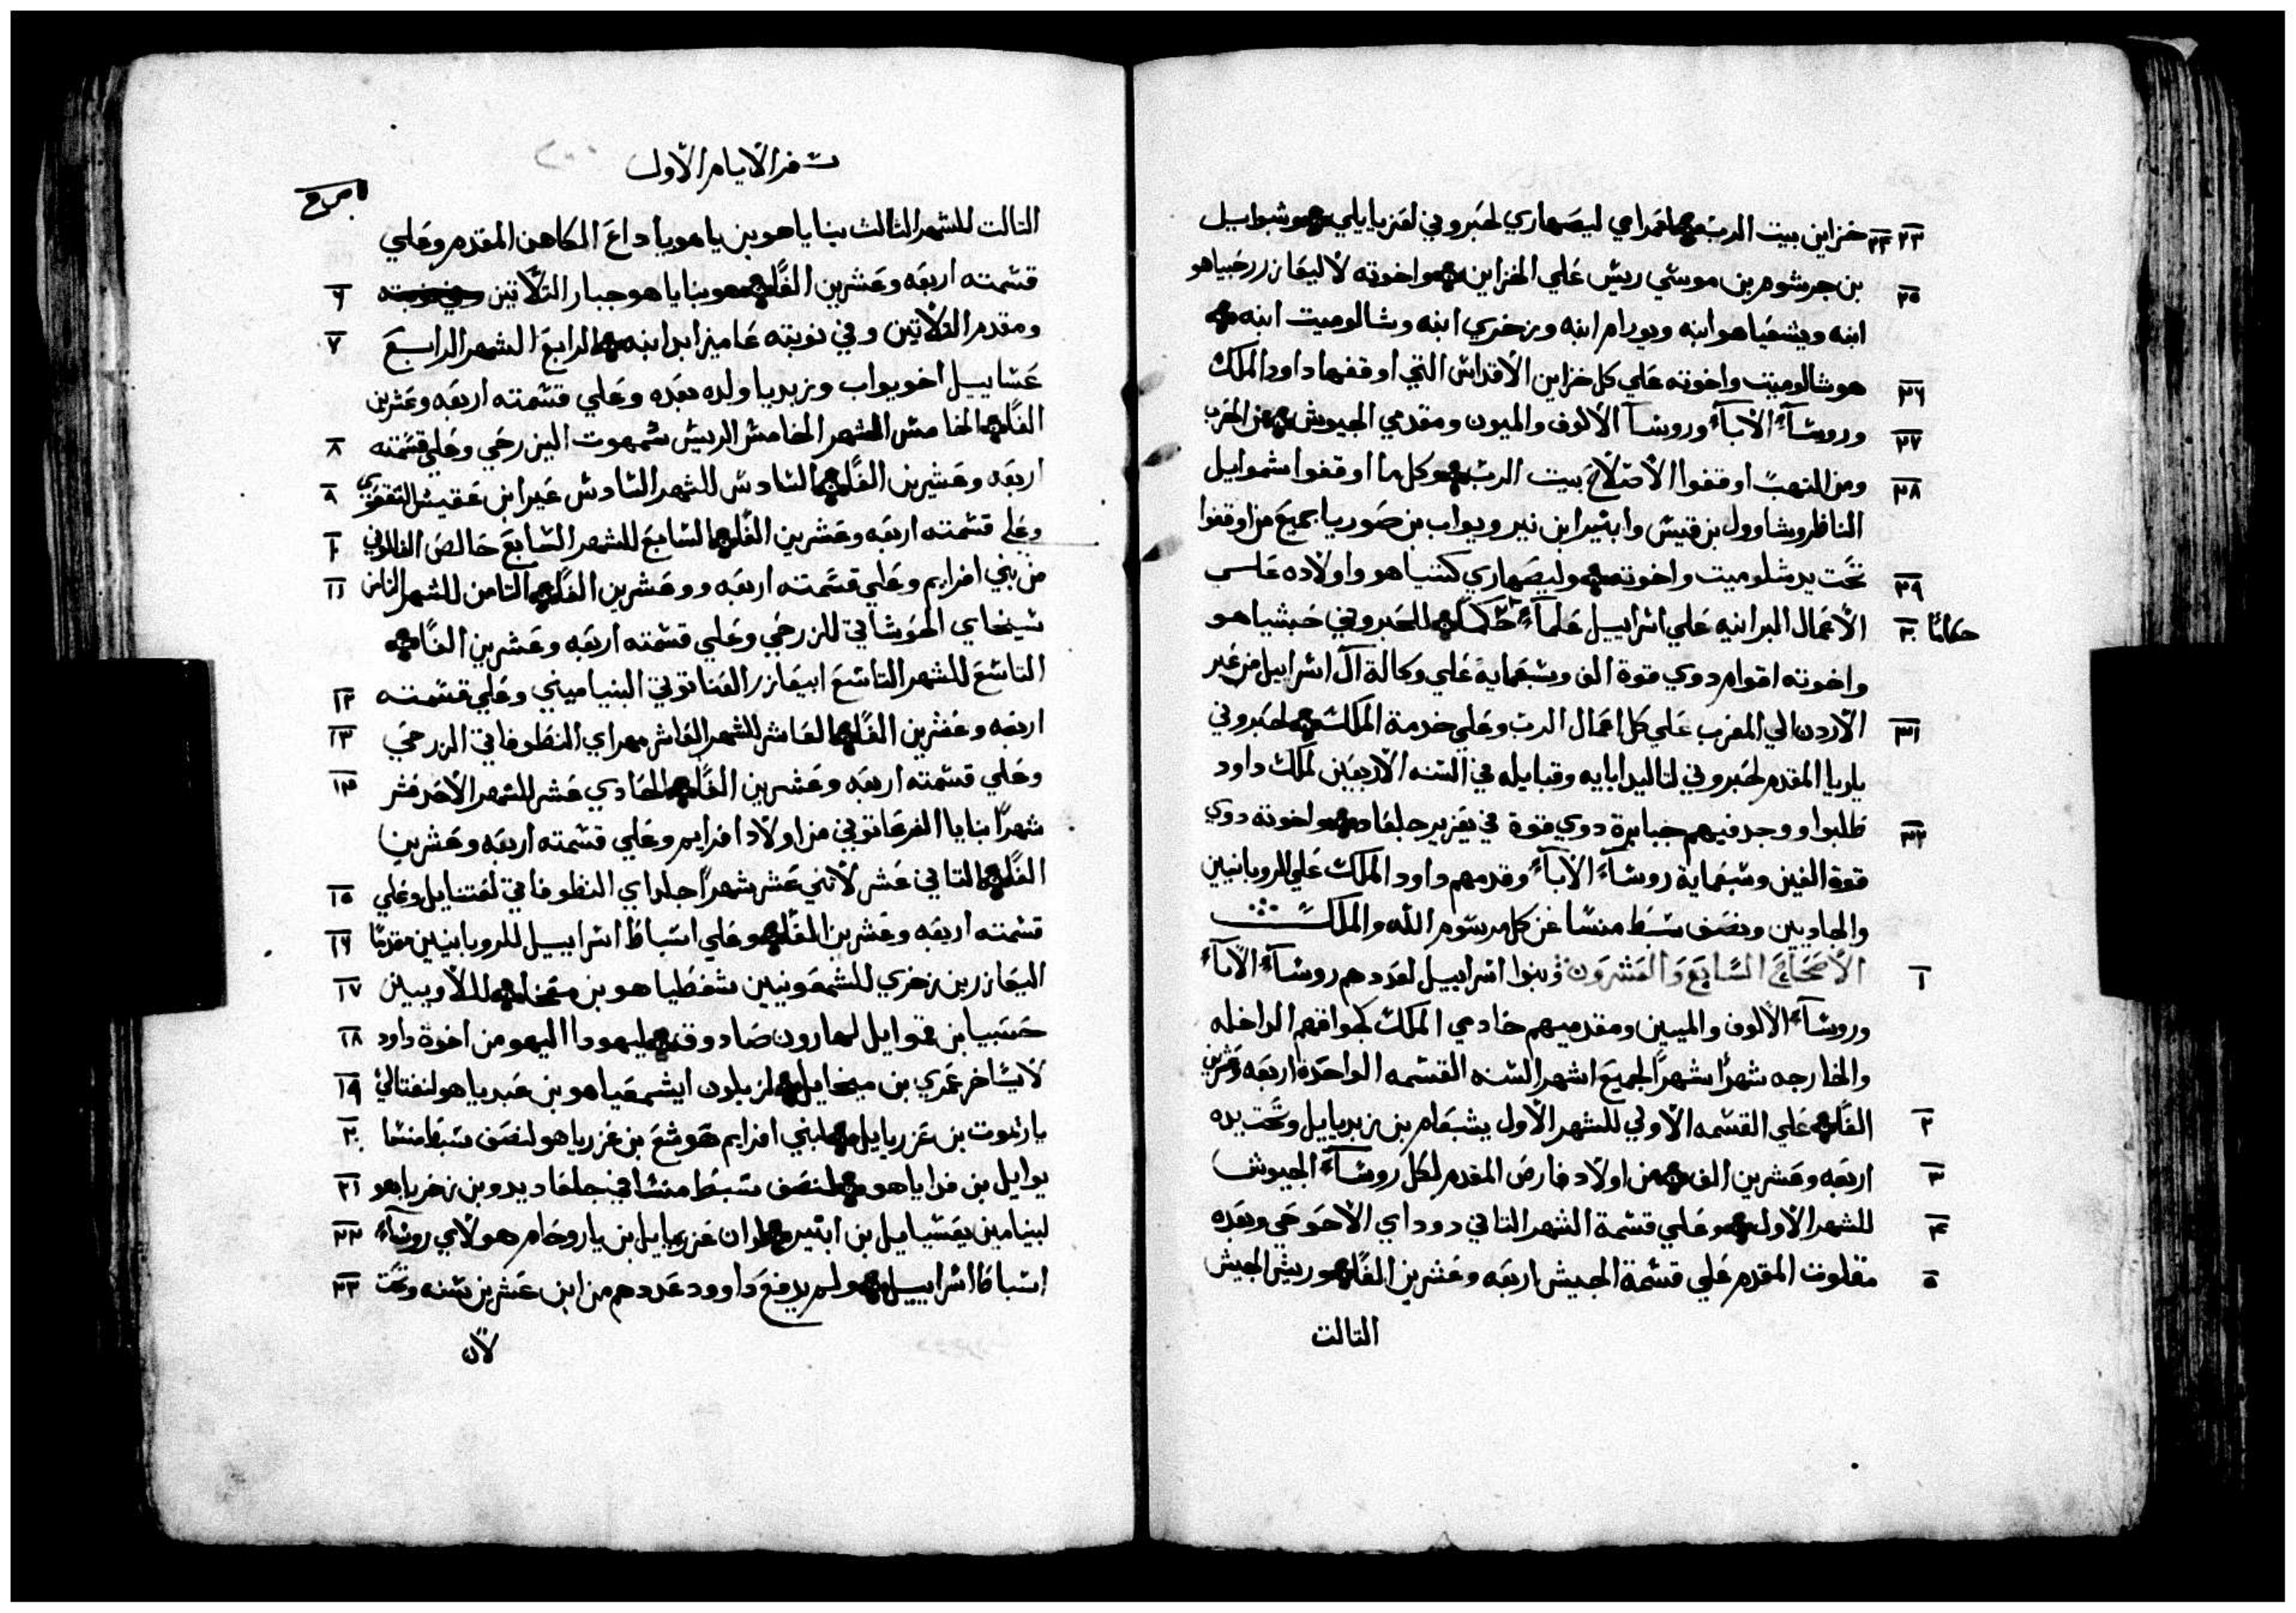 خزاين بيت الرب لعمرامي ليصهاري لحبروني لعزيايلي وشبوايل ٢٣ ٢٤
بن جرشوم بن موسي ريس علي الخزاين واخوته لاليعازر رحبياهو ٢٥
ابنه ويشعياهو ابنه ويورام ابنه وزخري ابنه وشالوميت ابنه
هو شالوميت واخوته علي كل خزاين الأقداس التي اوقفها داود الملك ٢٦
وروسآء الأبآء وروسآ الألوف والميون ومقدمي الجيوش من الحرب ٢٧
ومن النهب اوقفوا الأصلاح بيت الرب وكل ما اوقفوا شموايل ٢٨
الناظر وشاوول بن قيس وابنير ابن نير ويواب بن صوريا جميع من اوقفوا
تحت يد شلوميت واخوته وليصهاري كننياهو واولاده علي ٢٩
الأعمال البرانيه علي اسراييل علمآء حكما للحبروني حبشياهو ٣٠ حكامًا
واخوته اقوام دوي قوة الف وسبعمايه علي وكالة آل اسراييل من عبر
الأردن الي المغرب علي كل اعمال الرب وعلي خدمة الملك لحبروني ٣١
ياريا المقدم لحبروني لتاليد ابايه وقبايله في السنه الأربعين لملك داود
طلبوا ووجد فيهم جبابرة دوي قوة في يعزير جلعاد واخوته دوي ٣٢
قوة الفين وسبعماية روسآء الأبآء وقدمهم داود الملك علي الروبانيين
والجاديين ونصف سبط منسا عن كل مرسوم الله والملك
الأصحاح السابع والعشرون وبنوا اسراييل لعددهم روسآء الأبآء ١
وروسآء الألوف والميين ومقدميهم خادمي الملك لمواقهم الداخله
والخارجه شهرًا بشهرًا لجميع اشهر السنه القسمه الواحدة اربعه وعشرين
الفًا علي القسمه الأولي للشهر الأول يشبعام بن زبديايل وتحت يده ٢
اربعه وعشرين الف من اولاد فارص المقدم لكل روسآء الجيوش ٣
للشهر الأول وعلي قسمة الشهر التاني دوداي الأحوحي وبعده ٤
مقلوت المقدم علي قسمة الجيش اربعه وعشرين الفًا وريس الجيش ٥
التالت
سفر الأيام الأول
التالت للشهر الثالث بناياهو بن ياهوياداع الكاهن المقدم وعلي
قسمته اربعه وعشرين الفًا هو بناياهو جبار التلاتين ٦
ومقدم التلاتين وفي نوبته عاميزاب ابنه الرابع الشهر الرابع ٧
عساييل اخو يواب وزبديا ولده بعده وعلي قسمته اربعه وعشرين
الفًا الخامس الشهر الخامس الريس شمهوت اليزرحي وعلي قسمته ٨
اربعه وعشرين الفًا السادس للشهر السادس عيرا بن عقيش التقوعي ٩
وعلي قسمته اربعه وعشرين الفًا السابع للشهر السابع حالص الفلوني ١٠
من بني افرايم وعلي قسمته اربعه ووعشرين الفًا التامن للشهر التامن ١١
سبخاي الحوشاتي للزرحي وعلي قسمته اربعه وعشرين الفًا
التاسع للشهر التاسع ابيعازر العناتوتي البنياميني وعلي قسمته ١٢
اربعه وعشرين الفًا العاشر للشهر العاشر مهراي النطوفاتي الزرحي ١٣
وعلي قسمته اربعه وعشرين الفًا الحادي عشر للشهر الأحد عشر ١٤
شهرًا بنايا الفرعاتوني من اولاد افرايم وعلي قسمته اربعه وعشرين
الفًا التاني عشر لأتني عشر شهرًا حلداي النطوفاتي لعتنايل وعلي ١٥
قسمته اربعه وعشرين الفًا وعلي اسباط اسراييل للروبانيين مقدمًا ١٦
اليعازر بن زخري للشمعونيين شفطياهو بن معخا للأويين ١٧
حسبيا بن قموايل لهارون صادوق ليهودا اليهو من اخوة داود ١٨
لايساخر عمري بن ميخايل لزبلون ايشمعياهو بن عبدياهو لنفتالي ١٩
ياريموت بن عزريايل لبني افرايم هوشع بن عزرياهو لنصف سبط منسا ٢٠
يوايل بن فداياهو لنصف سبط منسا في جلعاد يدو بن زخرياهو ٢١
لبنيامين يعسيايل بن ابنير لدان عزريايل بن ياروحام هولاي روسآء ٢٢
اسباط اسراييل ولم يرفع داوود عددهم من ابن عشرين سنه وتحت ٢٣
لأن